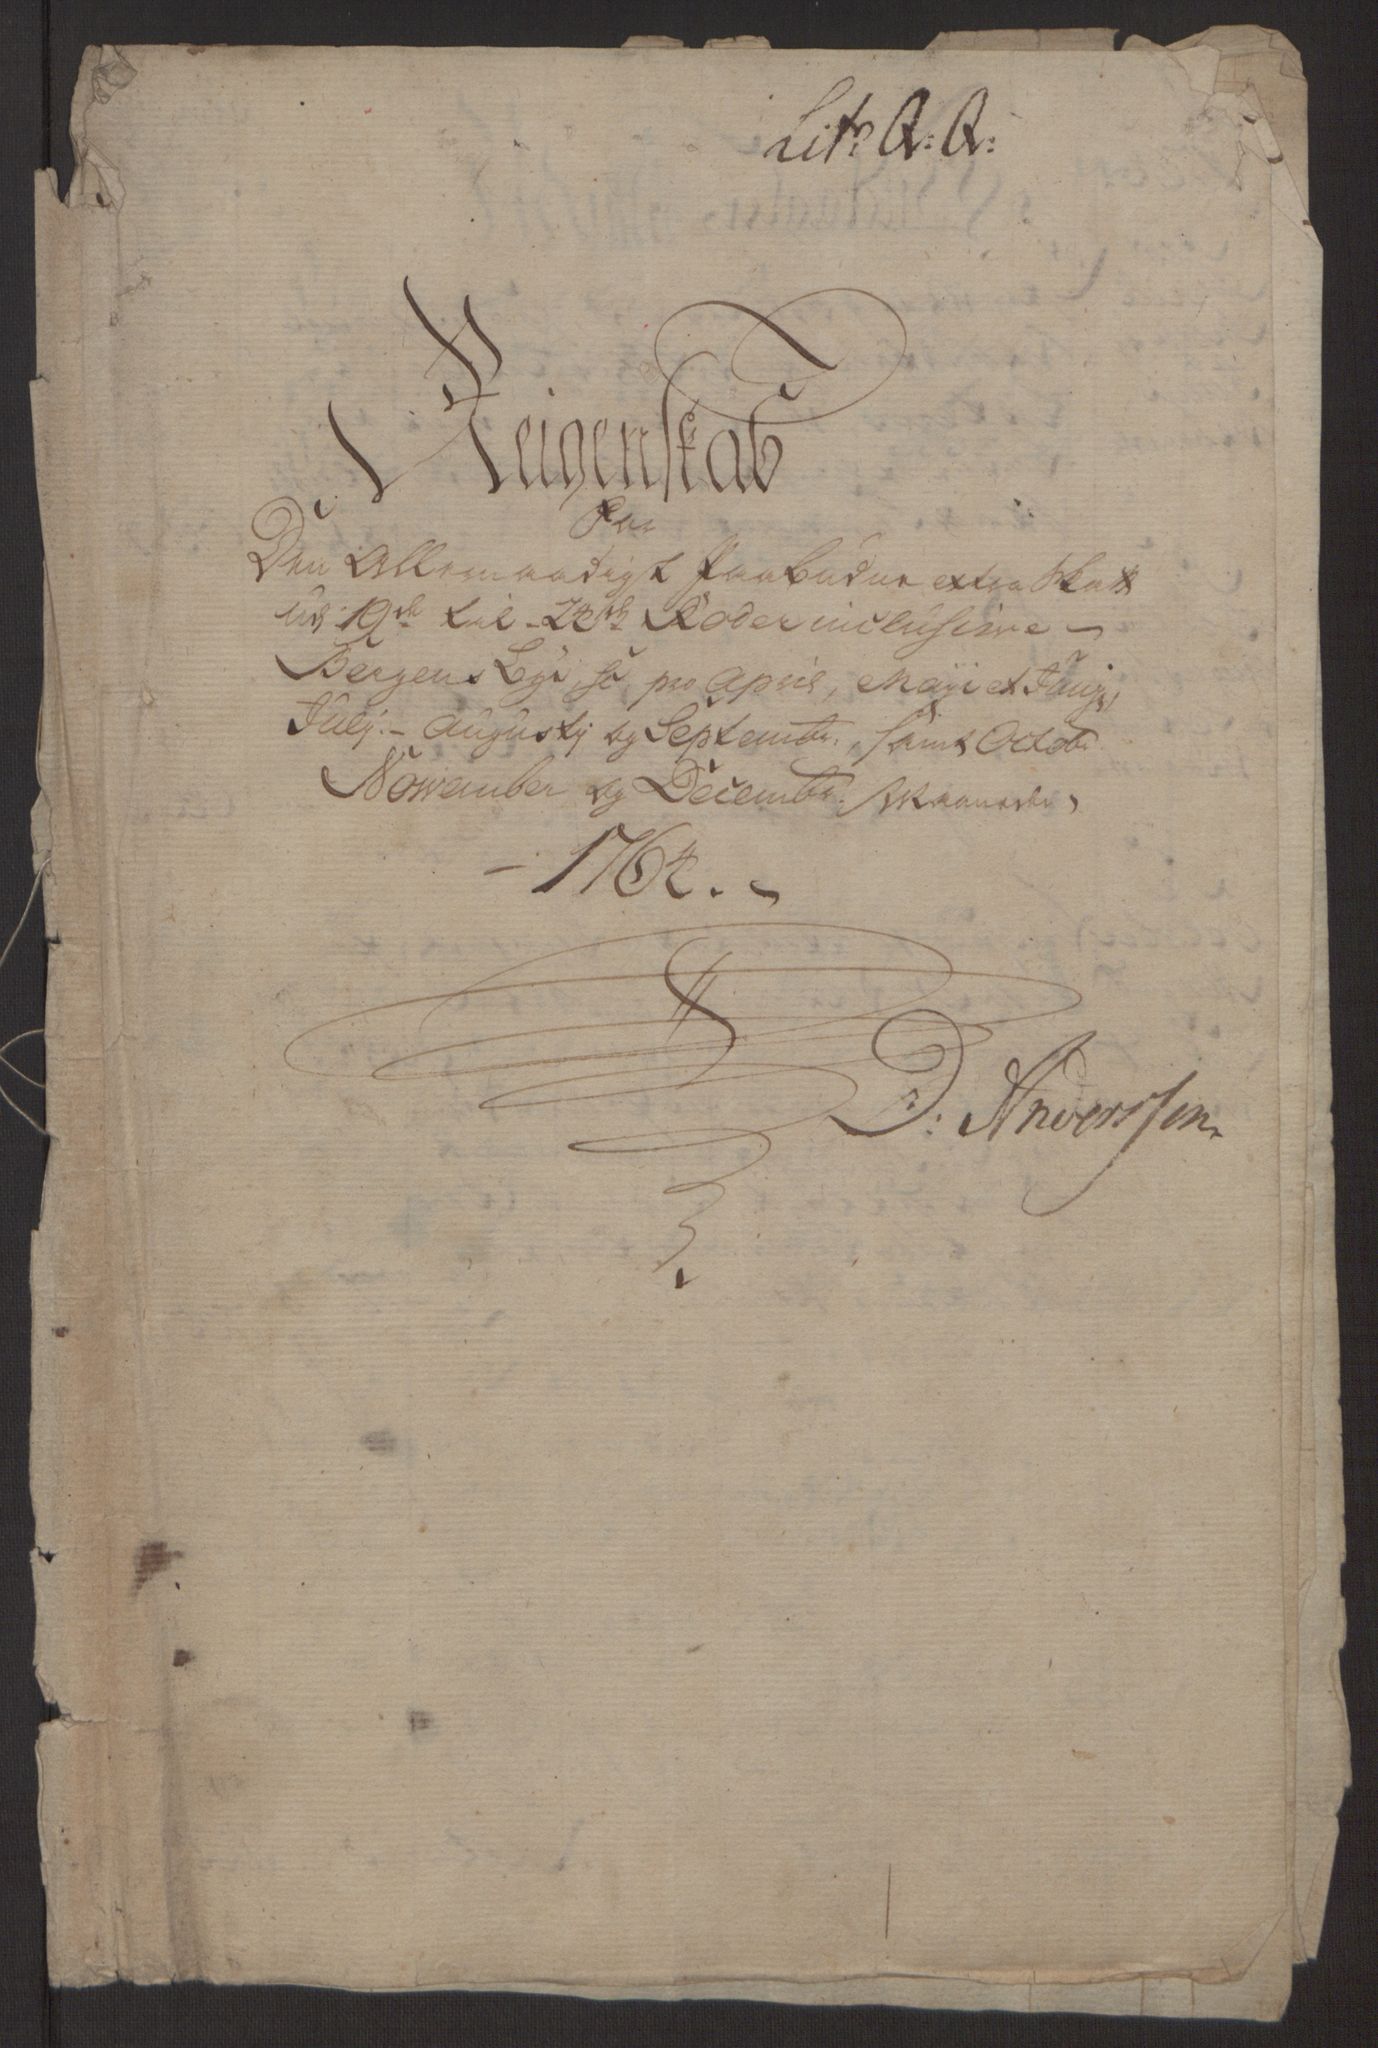 Litr: A: A:
Reigenskab
for
Den Allernaadigst Paabudne extra Skatt
udj 19de til 24de Roder inclusive
Bergens Bye, pro April, Maji et Junij,
Julij - Augustj og Septembr:, samt Octobr:
November og Decembr: Maaneder,
- 1764. -
D: Anderssen